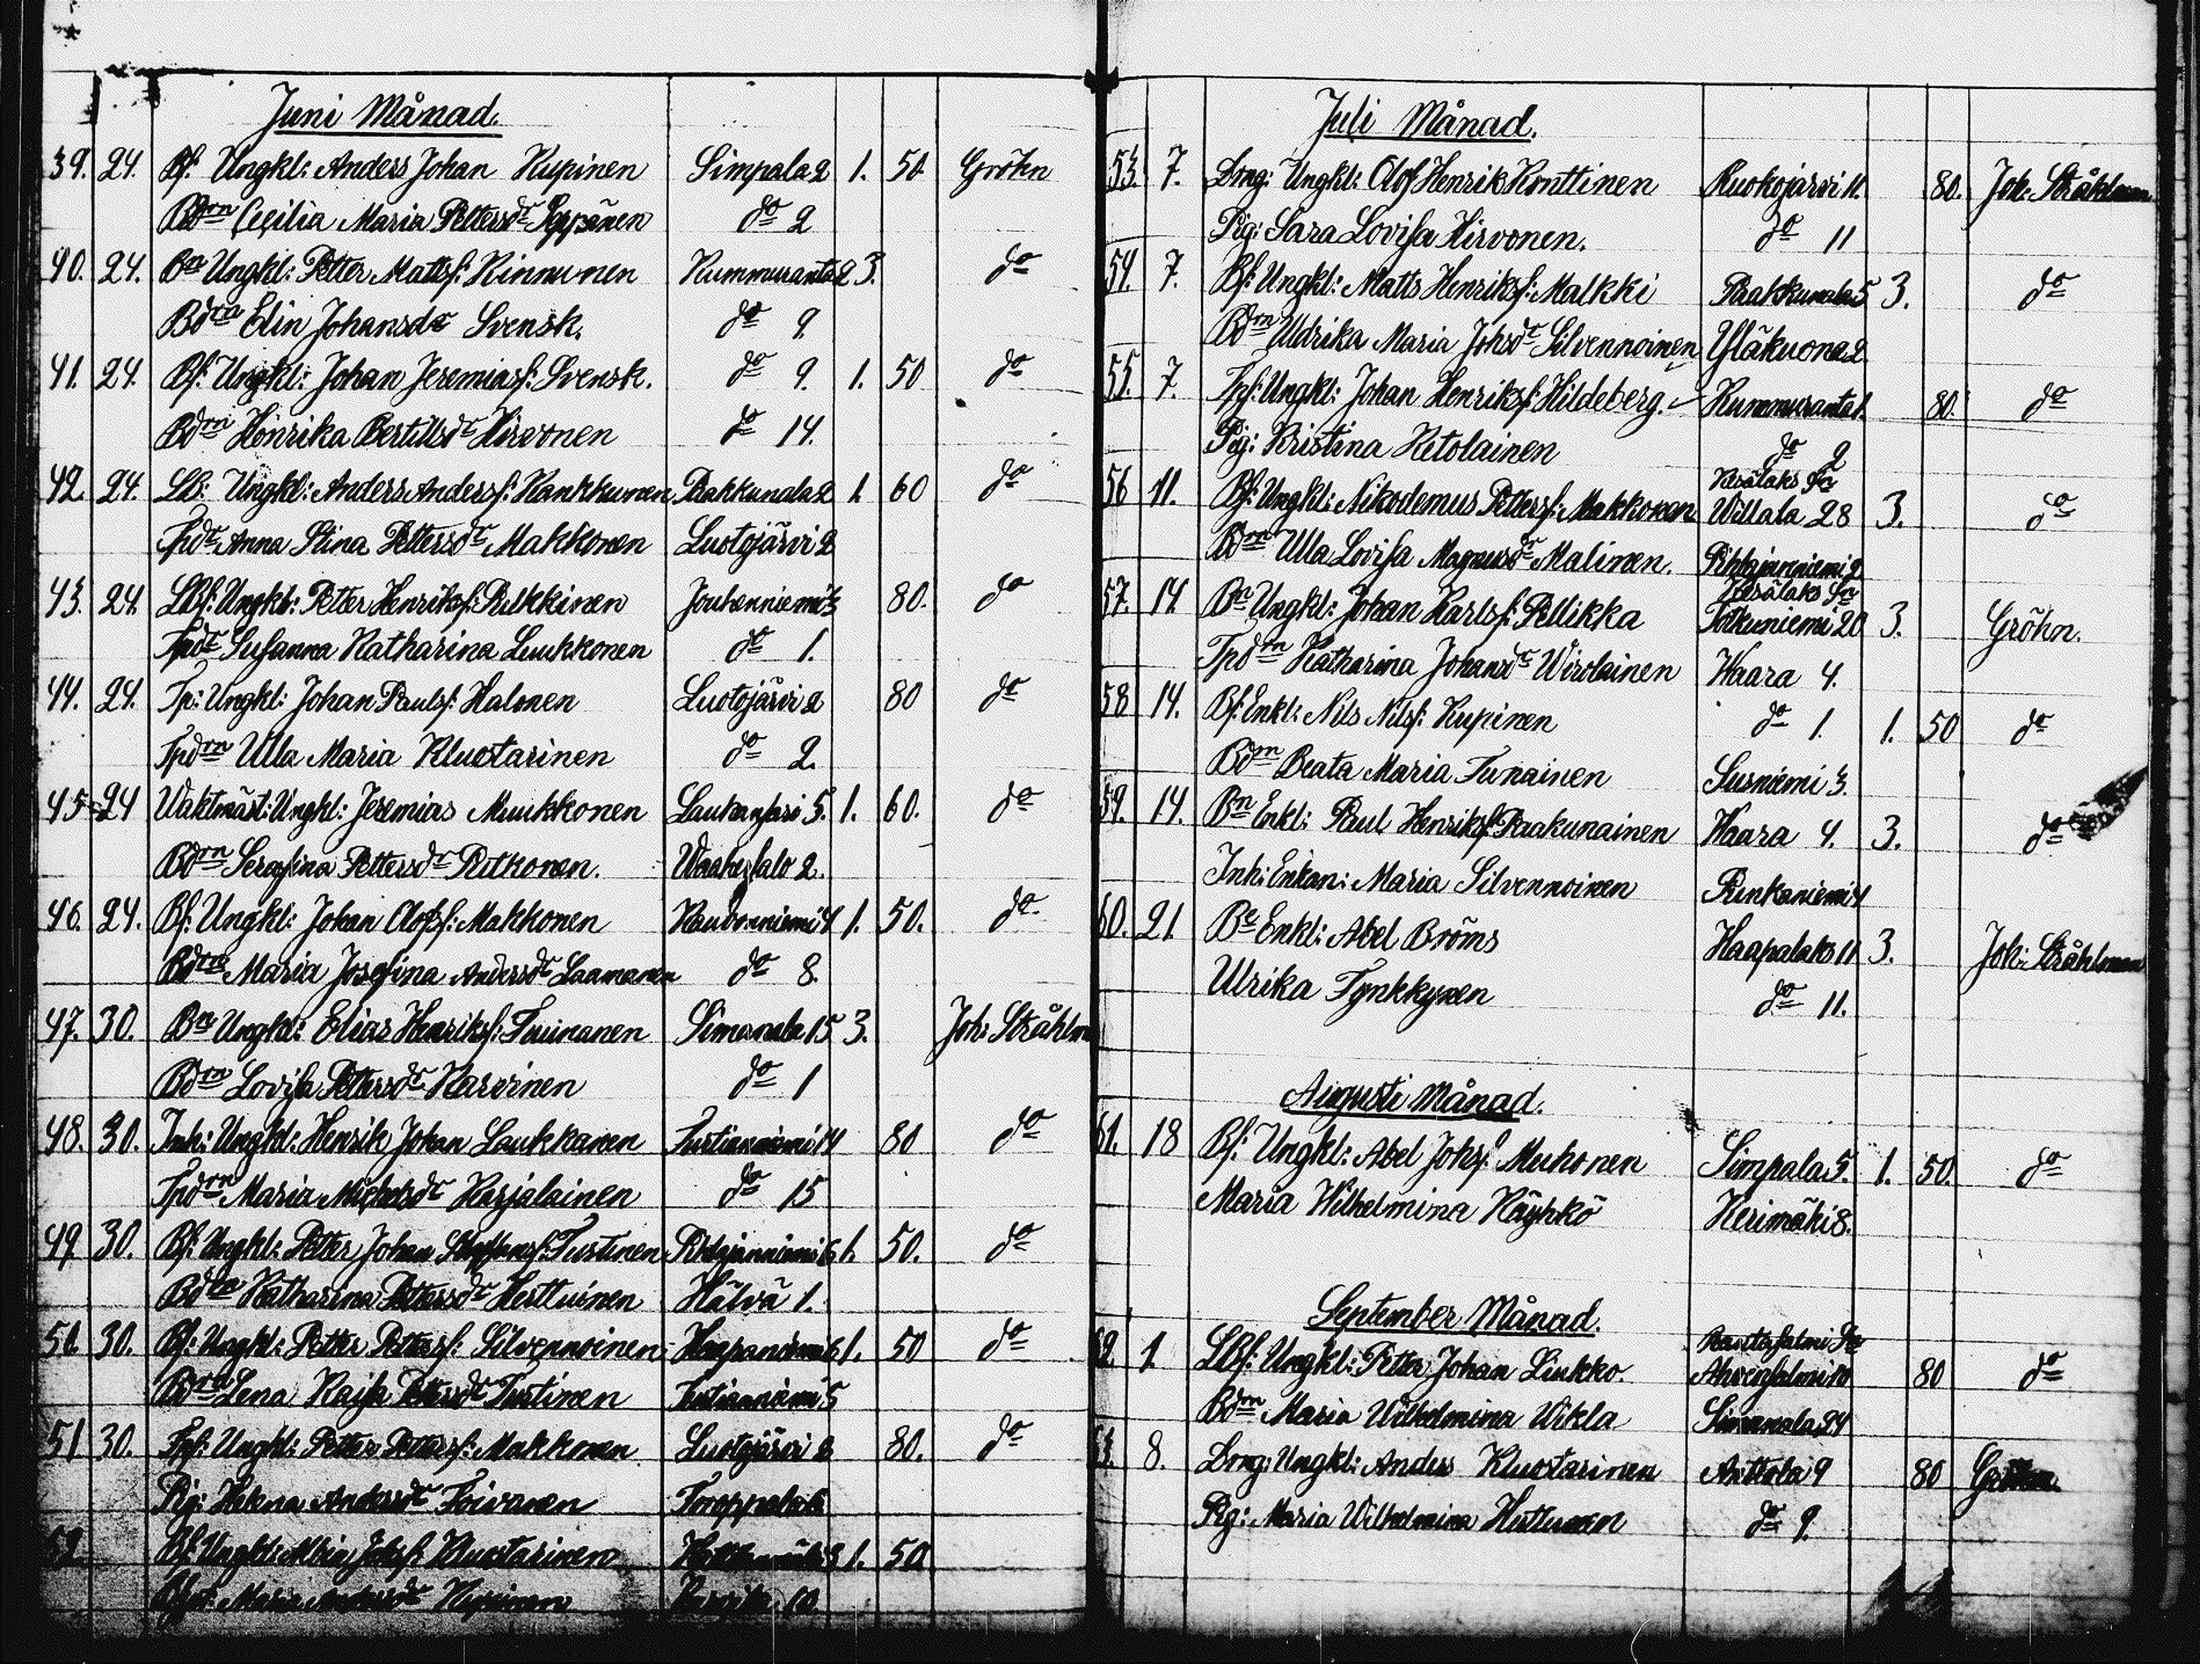 Juni Månad.
39. 24. Bf: Ungkl: Anders Johan Kupinen Simpala 2 1. 50 Gröhn
Bdrn Cecilia Maria Pettersdr Seppänen do 2
40. 24. Bn Ungkl: Petter Mattsf: Kinnunen Kummuranta 2 3. do
Bdrn Elin Johansdr Svensk. do 9.
41. 24. Bf: Ungkl: Johan Jeremiasf: Svensk. do 9. 1. 50 do
Bdrn Henrika Bertilsdr Hirvonen do 14.
42. 24. Ungkl: Anders Andersf: Kankkunen Pakkunala 2 1. 60 do
Tpdr Anna Stina Pettersdr Makkonen Luotojärvi 2
43. 24. LBf: Ungkl: Petter Henriksf: Pulkkinen Jouhenniemi 3 80. do
Tpdr Susanna Katharina Luukkonen do 1.
44. 24. Tp: Ungkl: Johan Paulsf: Halonen Luotojärvi 2 80 do
Tpdrn Ulla Maria Kluotarinen do 2.
45. 24 Waktmäst: Ungkl: Jeremias Muukkonen Laukansari 5. 1. 60. do
Bdrn Serafina Pettersdr Pitkonen. Waahersalo 2.
46. 24. Bf: Ungkl: Johan Olofsf: Makkonen 4 1. 50. do
Bdrn Maria Josefina Andersdr Laamanen do 8.
47. 30. Bn Ungkl: Elias Henriksf: Tuunanen Simanala 15 3. Joh: Stråhlm
Bdrn Lovisa Pettersdr Karvinen do 1
48. 30. Inh: Ungkl: Henrik Johan Laukkanen Tustianniemi 14 80 do
Tpdrn Maria Michelsdr Karjalainen do 15
49. 30. Bf: Ungkl: Petter Johan Staffansf: Tustinen Pihlajaniemi 6 1. 50. do
Bdrn Katharina Pettersdr Herttuinen Hälvä 1.
50. 30. Bf: Ungkl: Petter Pettersf: Silvennoinen Haapaniemi 6 1. 50 do
Bdrn Lena Kajsa Pettersdr Tustinen Tustianniemi 5
51 30. Tpf: Ungkl: Petter Pettersf: Makkonen Luotojärvi 2 80. do
Pig: Helena Andersdr Toivanen Toroppala 6
52. Bf: Ungkl: Albin Johsf: Kluotarinen 3 1. 50
Maria Andersdr Kupinen 10.
Juli Månad.
53. 7. Dreng: Ungkl: Olof Henrik Konttinen Ruokojärvi 11. 80. Joh: Stråhlman
Pig: Sara Lovisa Hirvonen. do 11
54. 7. Bf: Ungkl: Matts Henriksf: Malkki Paakkunala 5 3. do
Bdrn Uldrika Maria Johsdr Silvennoinen Yläkuona 2
55. 7. Tpf: Ungkl: Johan Henriksf: Hildeberg. Kummuranta 1. 80. do
Pig: Kristina Ketolainen do 2
56 11. Bf: Ungkl: Nikodemus Pettersf: Makkonen Kesälaks Sn Willala 28 3. do
Bdrn Ulla Lovisa Magnusdr Malinen. Pihlajaniemi 2
57. 14. Bn Ungkl: Johan Karlsf: Pellikka Kesälaks Sn Totkuniemi 20 3. Gröhn.
Tpdrn Katharina Johansdr Wirolainen Haara 4.
58 14. Bf: Enkl: Nils Nilsf: Kupinen do 1. 1. 50 do
Bdrn Beata Maria Tunainen Susniemi 3.
59. 14. Bn Enkl: Paul Henriksf: Paakunainen Haara 4. 3. do
Inh: Enkan: Maria Silvennoinen Punkaniemi 4
60. 21. Be Enkl: Abel Broms Haapalaks 11 3. Joh: Stråhlman
Ulrika Tynkkynen do 11.
Augusti Månad.
61. 18 Bf: Ungkl: Abel Johsf: Muhonen Simpala 5. 1. 50. do
Maria Wilhelmina Käyhkö Kerimäki 8.
September Månad.
62. 1. LBf: Ungkl: Petter Johan Liukko. Rantasalmi Sn Ahvensalmi 10 80 do
Bdrn Maria Wilhelmina Wikla Simanala 24
63. 8. Dreng: Ungkl: Anders Kluotarinen Anttola 9 80
Pig: Maria Wilhelmina Huttunen do 9.